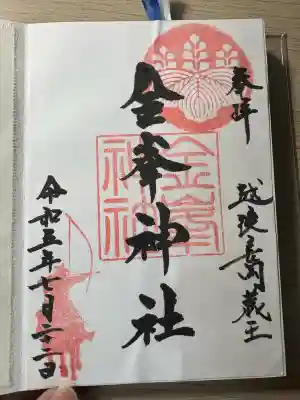 奉拝
越後長岡蔵王
金峯神社
金峯
神社
令和五年七月二十二日